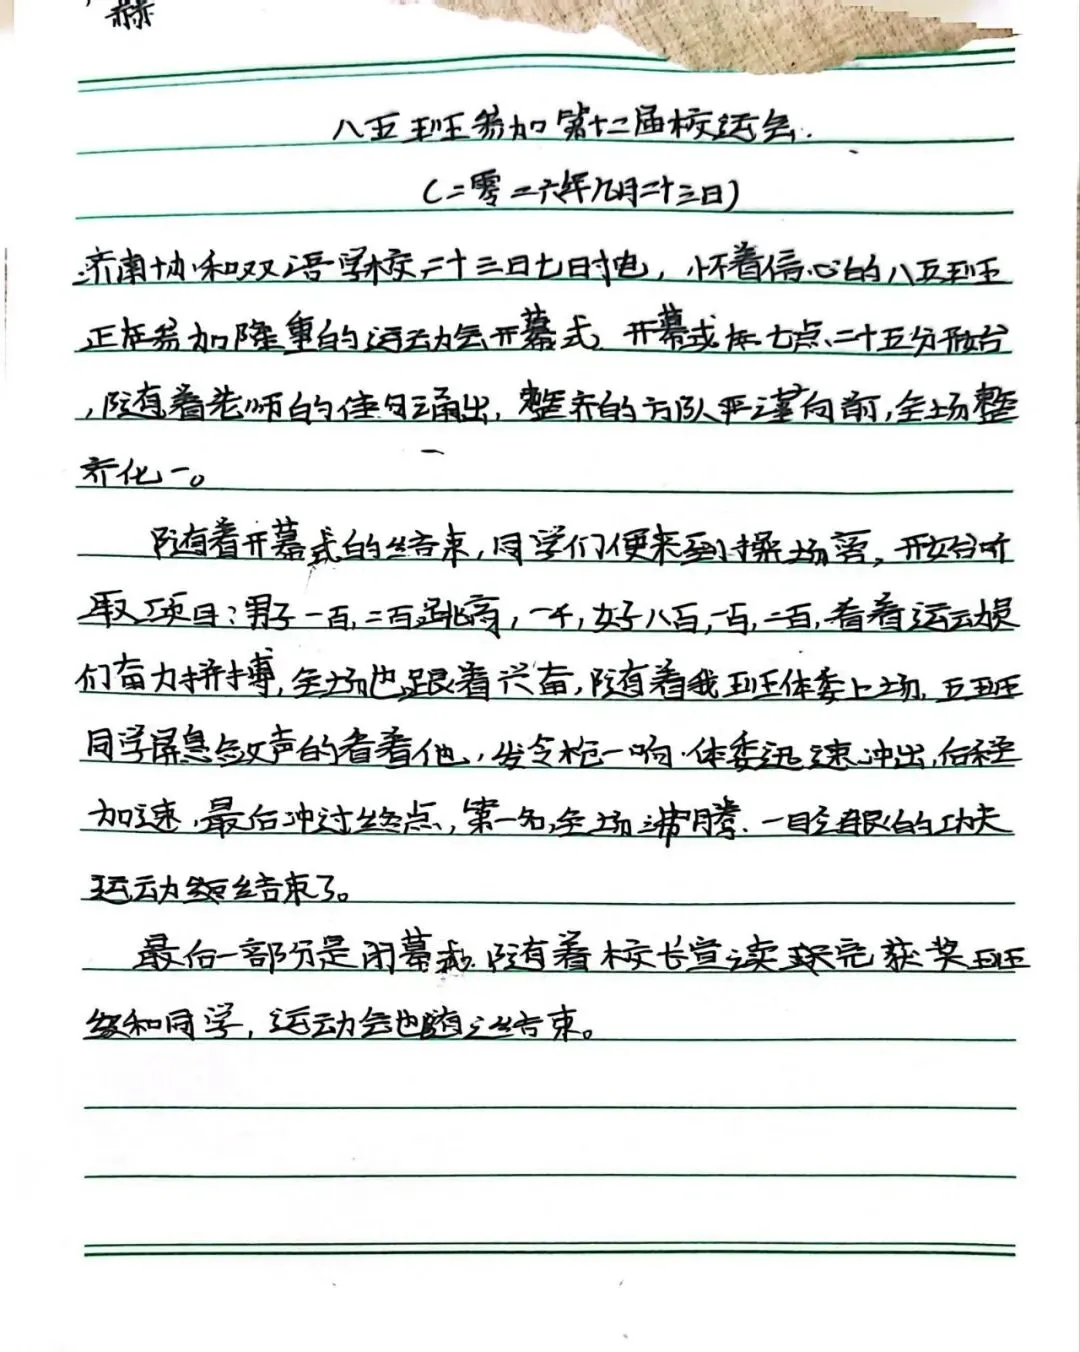 赫
八五班参加第十二届校运会.
(二零二六年九月二十三日)
济南协和双语学校二十三日七日时电，怀着信心的八五班正
正在参加隆重的运动会开幕式。开幕式在七点、二十五分开始
，随着着老师的佳句涌出，整齐的方队严谨向前，全场整
齐化一。
随着开幕式的结束，同学们便来到操场旁，开始听
取项目：男子一百，二百，跳高，一千，女子八百，一百，二百，看着运动员
们奋力拼搏，全场也跟着兴奋，随着我班体委上场，五班
同学屏息敛声的看着他，发令枪一响，体委迅速冲出，后程
加速，最后冲过终点，第一名，全场沸腾，一眨眼的功夫
运动会结束了。
最后一部分是闭幕式，随着校长宣读完获奖班
级和同学，运动会也随之结束。